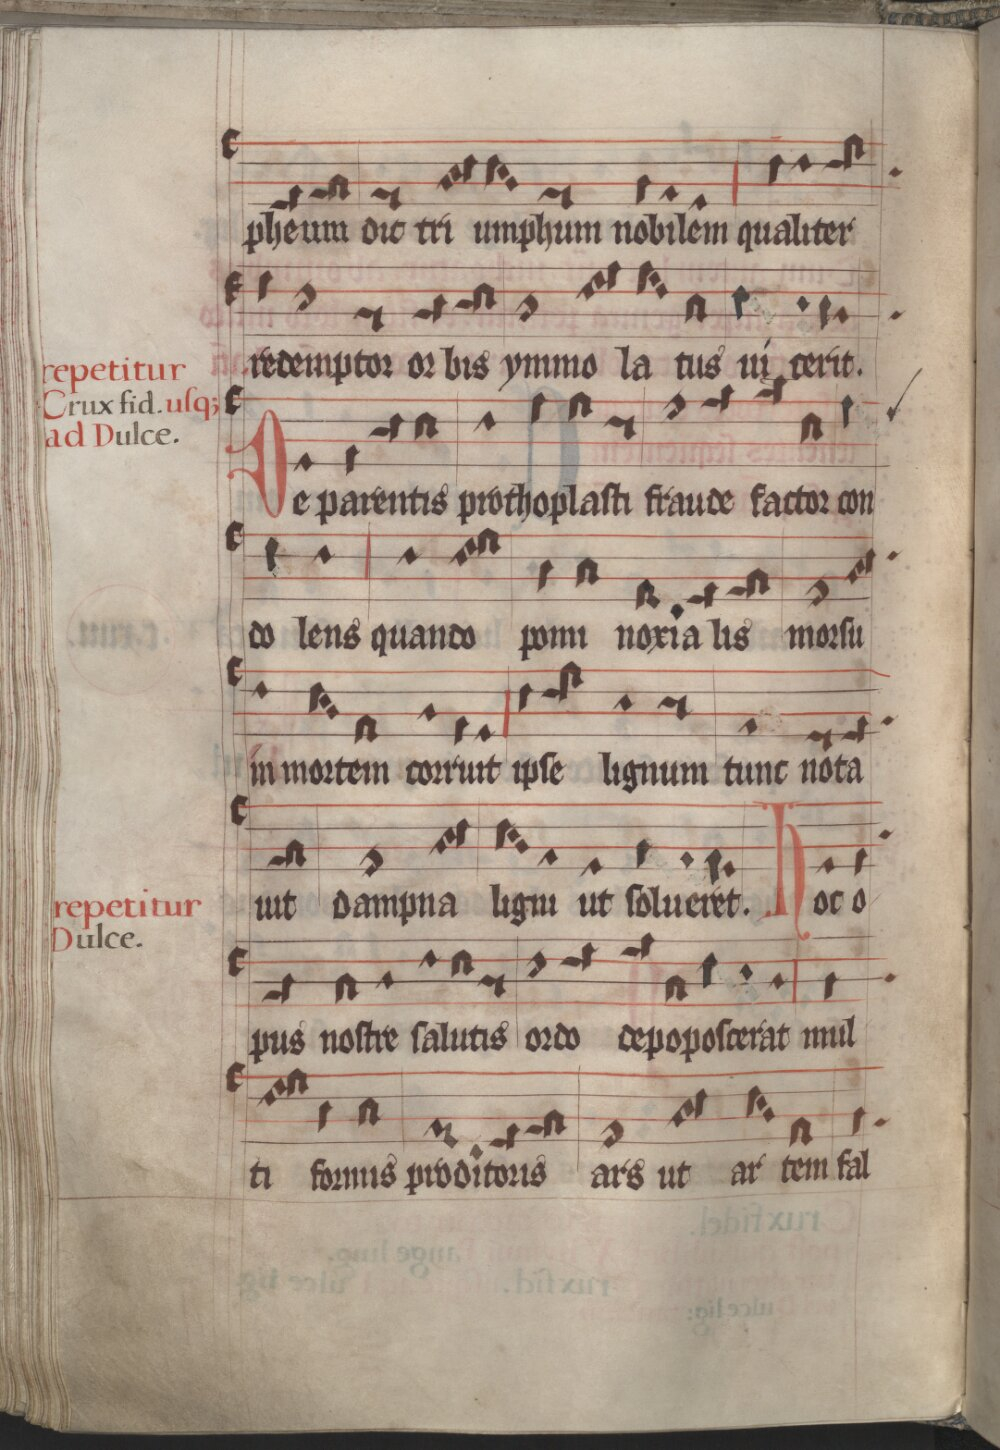 pheum dic tri umphum nobilem qualiter
redemptor orbis ymmolatus uicerit.
repetitur
Crux fid. usq;
ad Dulce.
De parentis prothoplasti fraude factor con
do lens quando pomi noxia lis morsu
in mortem corruit ipse lignum tunc nota
uit dampna ligni ut solueret. Hoc o
repetitur
Dulce.
pus nostre salutis ordo depoposcerat mul
ti formis proditoris ars ut ar tem fal